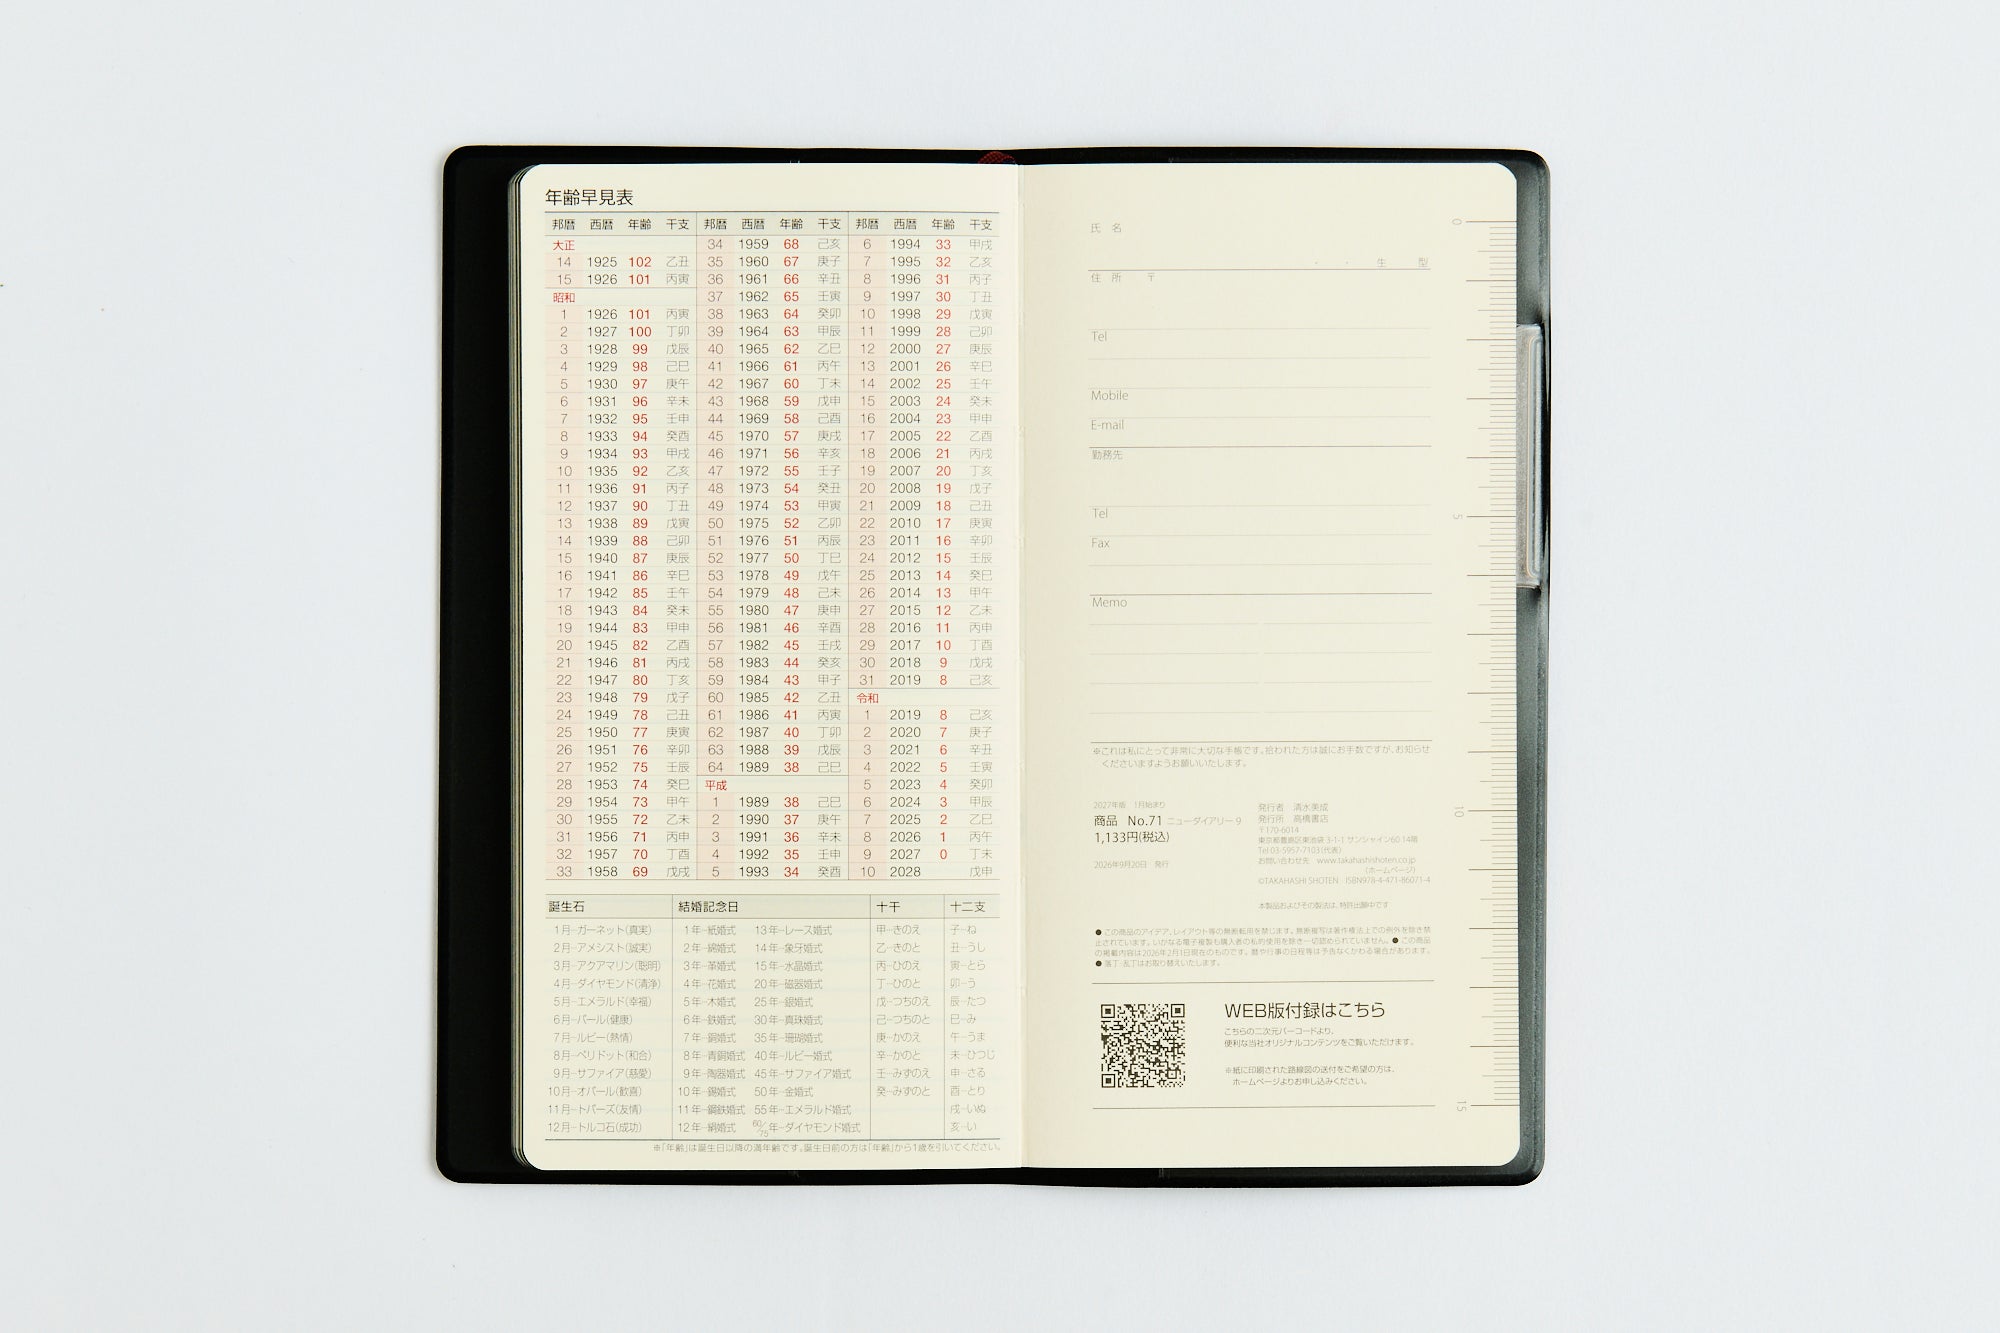 年齢早見表
邦暦 西暦 年齢 干支
大正
14 1925 102 乙丑
15 1926 101 丙寅
昭和
1 1926 101 丙寅
2 1927 100 丁卯
3 1928 99 戊辰
4 1929 98 己巳
5 1930 97 庚午
6 1931 96 辛未
7 1932 95 壬申
8 1933 94 癸酉
9 1934 93 甲戌
10 1935 92 乙亥
11 1936 91 丙子
12 1937 90 丁丑
13 1938 89 戊寅
14 1939 88 己卯
15 1940 87 庚辰
16 1941 86 辛巳
17 1942 85 壬午
18 1943 84 癸未
19 1944 83 甲申
20 1945 82 乙酉
21 1946 81 丙戌
22 1947 80 丁亥
23 1948 79 戊子
24 1949 78 己丑
25 1950 77 庚寅
26 1951 76 辛卯
27 1952 75 壬辰
28 1953 74 癸巳
29 1954 73 甲午
30 1955 72 乙未
31 1956 71 丙申
32 1957 70 丁酉
33 1958 69 戊戌
邦暦 西暦 年齢 干支
34 1959 68 己亥
35 1960 67 庚子
36 1961 66 辛丑
37 1962 65 壬寅
38 1963 64 癸卯
39 1964 63 甲辰
40 1965 62 乙巳
41 1966 61 丙午
42 1967 60 丁未
43 1968 59 戊申
44 1969 58 己酉
45 1970 57 庚戌
46 1971 56 辛亥
47 1972 55 壬子
48 1973 54 癸丑
49 1974 53 甲寅
50 1975 52 乙卯
51 1976 51 丙辰
52 1977 50 丁巳
53 1978 49 戊午
54 1979 48 己未
55 1980 47 庚申
56 1981 46 辛酉
57 1982 45 壬戌
58 1983 44 癸亥
59 1984 43 甲子
60 1985 42 乙丑
61 1986 41 丙寅
62 1987 40 丁卯
63 1988 39 戊辰
64 1989 38 己巳
平成
1 1989 38 己巳
2 1990 37 庚午
3 1991 36 辛未
4 1992 35 壬申
5 1993 34 癸酉
邦暦 西暦 年齢 干支
6 1994 33 甲戌
7 1995 32 乙亥
8 1996 31 丙子
9 1997 30 丁丑
10 1998 29 戊寅
11 1999 28 己卯
12 2000 27 庚辰
13 2001 26 辛巳
14 2002 25 壬午
15 2003 24 癸未
16 2004 23 甲申
17 2005 22 乙酉
18 2006 21 丙戌
19 2007 20 丁亥
20 2008 19 戊子
21 2009 18 己丑
22 2010 17 庚寅
23 2011 16 辛卯
24 2012 15 壬辰
25 2013 14 癸巳
26 2014 13 甲午
27 2015 12 乙未
28 2016 11 丙申
29 2017 10 丁酉
30 2018 9 戊戌
31 2019 8 己亥
令和
1 2019 8 己亥
2 2020 7 庚子
3 2021 6 辛丑
4 2022 5 壬寅
5 2023 4 癸卯
6 2024 3 甲辰
7 2025 2 乙巳
8 2026 1 丙午
9 2027 0 丁未
10 2028 戊申
誕生石
1月—ガーネット(真実)
2月—アメシスト(誠実)
3月—アクアマリン(聡明)
4月—ダイヤモンド(清浄)
5月—エメラルド(幸福)
6月—パール(健康)
7月—ルビー(熱情)
8月—ペリドット(和合)
9月—サファイア(慈愛)
10月—オパール(歓喜)
11月—トパーズ(友情)
12月—トルコ石(成功)
結婚記念日
1年—紙婚式 13年—レース婚式
2年—綿婚式 14年—象牙婚式
3年—革婚式 15年—水晶婚式
4年—花婚式 20年—磁器婚式
5年—木婚式 25年—銀婚式
6年—鉄婚式 30年—真珠婚式
7年—銅婚式 35年—珊瑚婚式
8年—青銅婚式 40年—ルビー婚式
9年—陶器婚式 45年—サファイア婚式
10年—錫婚式 50年—金婚式
11年—鋼鉄婚式 55年—エメラルド婚式
12年—絹婚式 60/75年—ダイヤモンド婚式
十干
甲—きのえ
乙—きのと
丙—ひのえ
丁—ひのと
戊—つちのえ
己—つちのと
庚—かのえ
辛—かのと
壬—みずのえ
癸—みずのと
十二支
子—ね
丑—うし
寅—とら
卯—う
辰—たつ
巳—み
午—うま
未—ひつじ
申—さる
酉—とり
戌—いぬ
亥—い
※「年齢」は誕生日以降の満年齢です。誕生日前の方は「年齢」から1歳を引いてください。
氏 名
・ ・ 生 型
住 所 〒
Tel
Mobile
E-mail
勤務先
Tel
Fax
Memo
※これは私にとって非常に大切な手帳です。拾われた方は誠にお手数ですが、お知らせ
くださいますようお願いいたします。
2027年版 1月始まり
商品 No.71 ニューダイアリー 9
1,133円(税込)
2026年9月20日 発行
発行者 清水美成
発行所 高橋書店
〒170-6014
東京都豊島区東池袋 3-1-1 サンシャイン60 14階
Tel 03-5957-7103(代表)
お問い合わせ先 www.takahashishoten.co.jp
(ホームページ)
©TAKAHASHI SHOTEN ISBN978-4-471-86071-4
本製品およびその製法は、特許出願中です
●この商品のアイデア、レイアウト等の無断転用を禁じます。無断複写は著作権法上での例外を除き禁
止されています。いかなる電子複製も購入者の私的使用を除き一切認められていません。●この商品
の掲載内容は2026年2月1日現在のものです。暦や行事の日程等は予告なくかわる場合があります。
●落丁・乱丁はお取り替えいたします。
WEB版付録はこちら
こちらの二次元バーコードより、
便利な当社オリジナルコンテンツをご覧いただけます。
※紙に印刷された路線図の送付をご希望の方は、
ホームページよりお申し込みください。
0
5
10
15